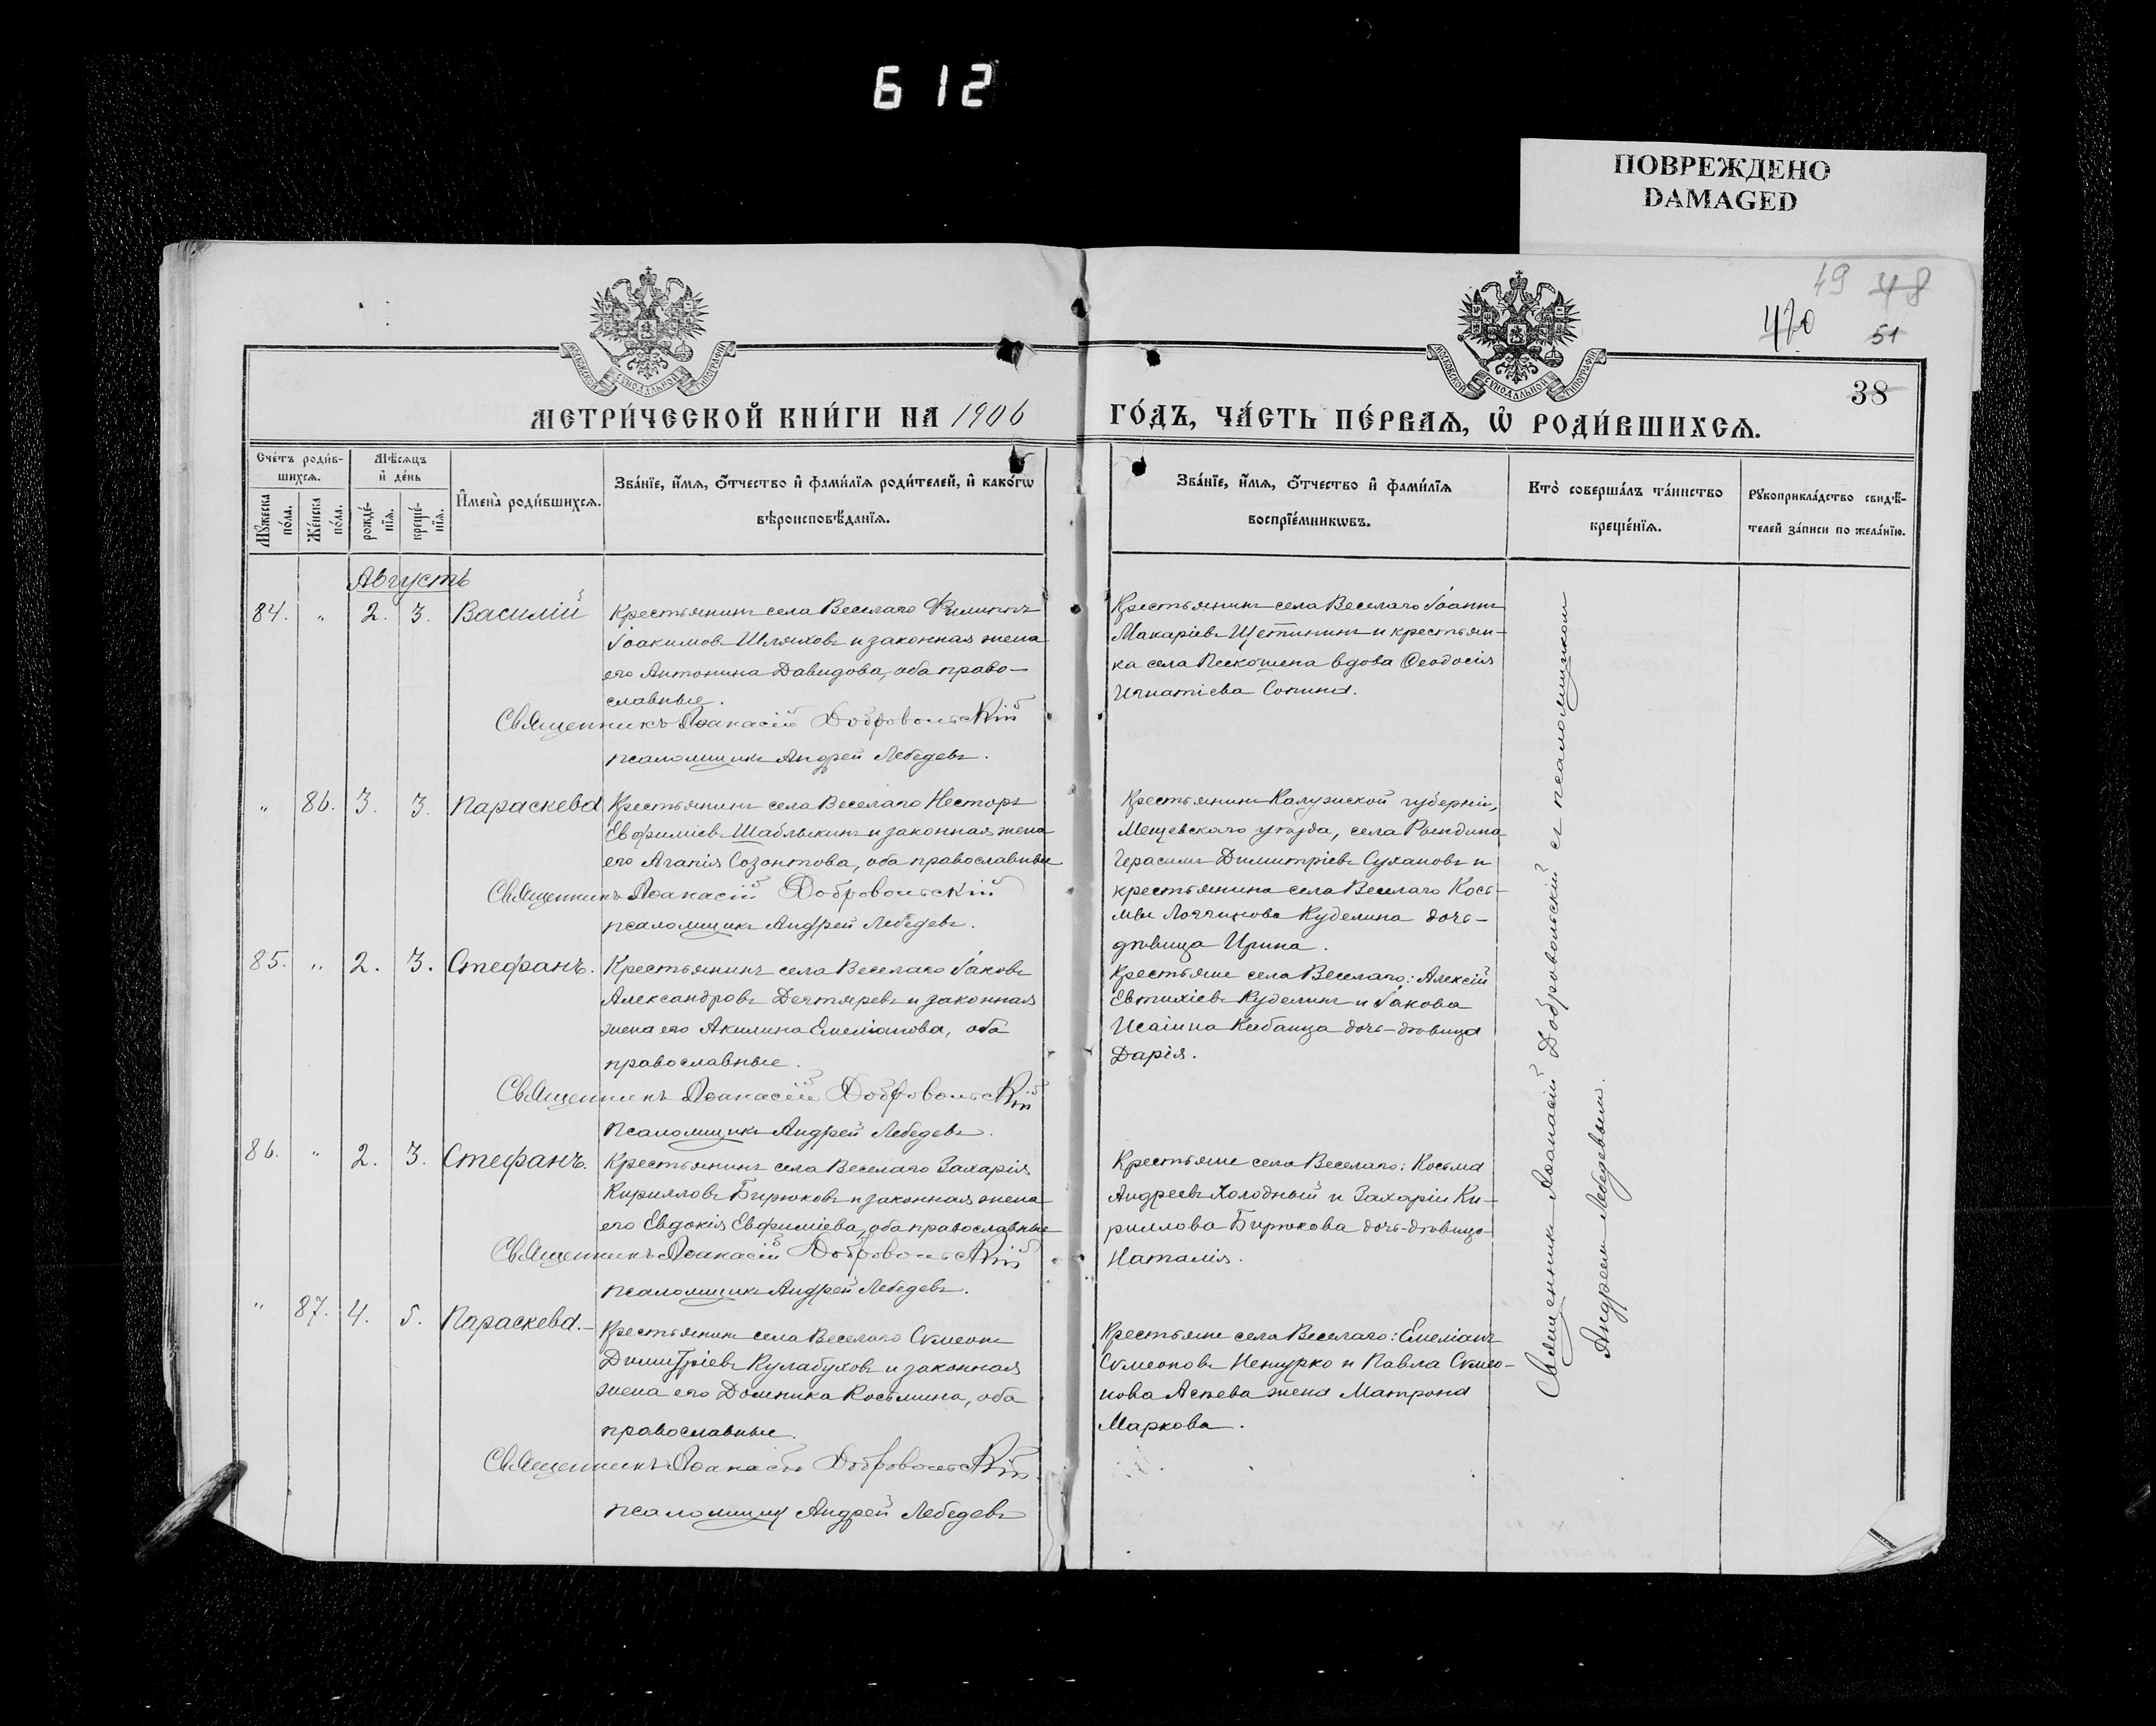 612
ПОВРЕЖДЕНО
DAMAGED
49 48
470
51
38
МОСКОВСКОЙ СУНОДАЛЬНОЙ ТИПОГРАФІИ
МОСКОВСКОЙ СУНОДАЛЬНОЙ ТИПОГРАФІИ
МЕТРИ́ЧЕСКОЙ КНИ́ГИ НА 1906
ГО́ДЪ, ЧА́СТЬ ПЕ́РВАѦ, Ѡ҆ РОДИ́ВШИХСѦ.
Сче́тъ роди́в-
шихсѧ.
Мꙋ́жеска по́ла.
Же́нска по́ла.
Мѣ́сѧцъ
и҆ де́нь
рожде́-нїѧ.
креще́-нїѧ.
И҆мена̀ роди́вшихсѧ.
Зва́нїе, и҆́мѧ, ѻ҆́тчество и҆ фами́лїѧ роди́телей, и҆ како́гѡ
вѣроисповѣ́данїѧ.
Зва́нїе, и҆́мѧ, ѻ҆́тчество и҆ фами́лїѧ
воспрїе́мникѡвъ.
Кто̀ соверша́лъ та́инство
креще́нїѧ.
Рꙋкоприкла́дство свидѣ́-
телей за́писи по жела́нїю.
Августъ
84. „ 2. 3. Василій
Крестьянинъ села Веселаго Филиппъ
Іоакимовъ Шляховъ и законная жена
его Антонина Давидова, оба право-
славные.
Священникъ Аѳанасій Добровольскій
псаломщикъ Андрей Лебедевъ.
Крестьянинъ села Веселаго Іоаннъ
Макаріевъ Щетининъ и крестьян-
ка села Пескошина вдова Ѳеодосія
Игнатіева Сопина.
„ 86. 3. 3. Параскева
Крестьянинъ села Веселаго Несторъ
Евфиміевъ Шаблыкинъ и законная жена
его Агапія Созонтова, оба православные
Священникъ Аѳанасій Добровольскій
псаломщикъ Андрей Лебедевъ.
Крестьянинъ Калужской губерніи,
Мещевскаго уѣзда, села
Герасимъ Димитріевъ Сухановъ и
крестьянина села Веселаго Кось-
мы Логгинова Куделина дочь-
дѣвица Ирина.
85. „ 2. 3. Стефанъ.
Крестьянинъ села Веселаго Іаковъ
Александровъ Дегтяревъ и законная
жена его Акилина Емеліанова, оба
православные.
Священникъ Аѳанасій Добровольскій
Псаломщикъ Андрей Лебедевъ.
Крестьяне села Веселаго: Алексій
Евтихіевъ Куделинъ и Іакова
Исаіина Кабанца дочь-дѣвица
Дарія.
86. „ 2. 3. Стефанъ.
Крестьянинъ села Веселаго Захарія
Кирилловъ Бирюковъ и законная жена
его Евдокія Евфиміева, оба православные
Священникъ Аѳанасій Добровольскій
псаломщикъ Андрей Лебедевъ.
Крестьяне села Веселаго: Косьма
Андреевъ Холодный и Захаріи Ки-
риллова Бирюкова дочь-дѣвица
Наталія.
„ 87. 4. 5. Параскева.
Крестьянинъ села Веселаго Сѵмеонъ
Димитріевъ Кулабуховъ и законная
жена его Домника Косьмина, оба
православные.
Священникъ Аѳанасій Добровольскій.
псаломщикъ Андрей Лебедевъ
Крестьяне села Веселаго: Емеліанъ
Сѵмеоновъ и Павла Сѵмео-
нова жена Матрона
Маркова.
Священникъ Аѳанасій Добровольскій съ псаломщикомъ
Андреемъ Лебедевымъ.